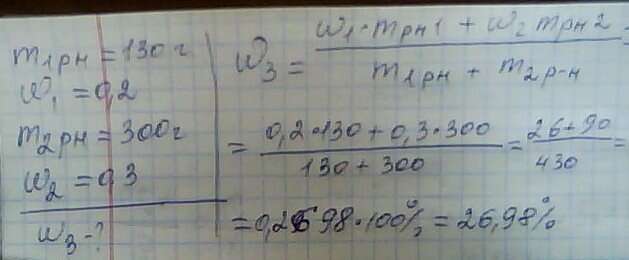 m₁рн = 130 г
ω₁ = 0,2
m₂рн = 300г
ω₂ = 0,3
ω₃ - ?
ω₃ = (ω₁·mрн1 + ω₂ mрн2) / (m₁рн + m₂р-н) =
= (0,2·130 + 0,3·300) / (130 + 300) = (26 + 90) / 430 =
= 0,2698·100% = 26,98%